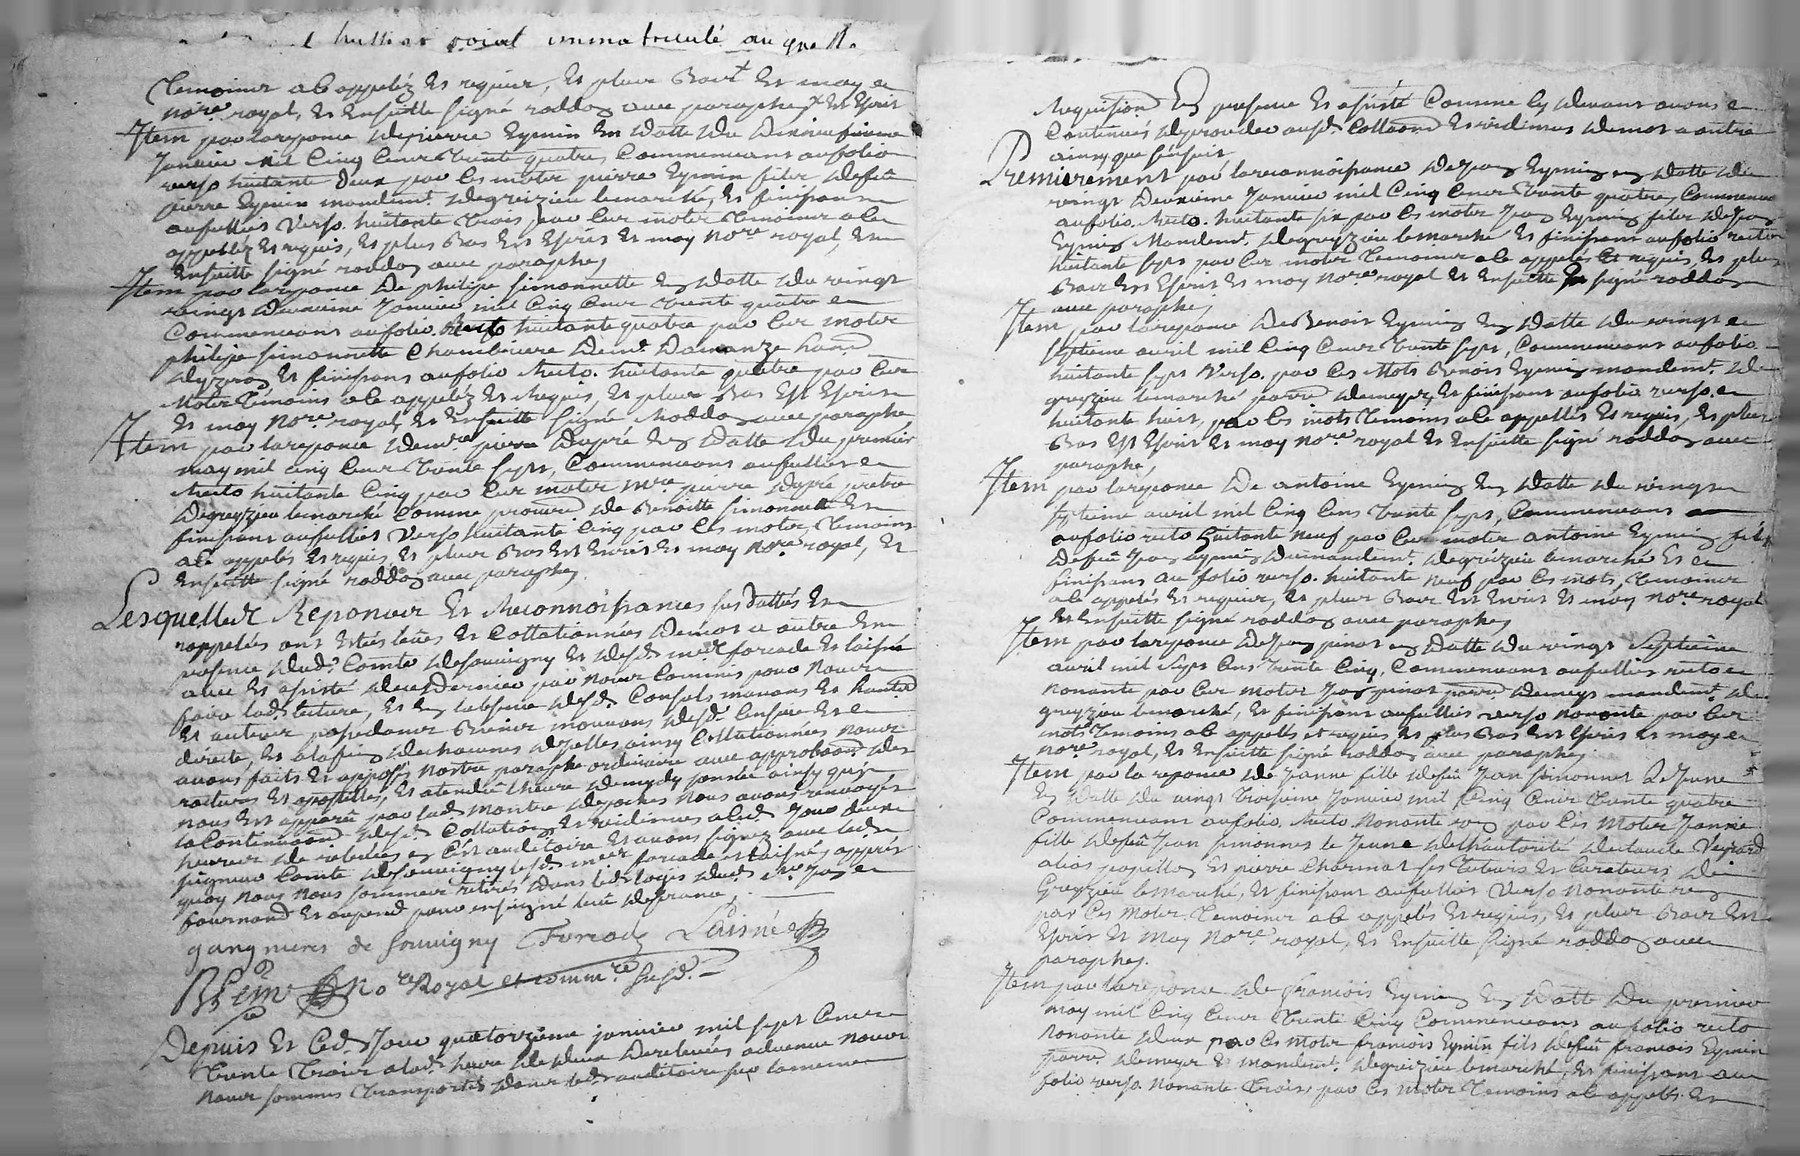 huissier royal immatriculé au greffe
Temoins ab appeléz Et requis, Et plus Bas Est Et moy
No.re royal, Et Ensuitte signé roddoz avec paraphe, Et Escrit
Item par la reponce de pierre Eymin En datte du Dixneufvieme
Janvier mil Cinq Cents Trente quatre, Commencans au folio
verso huitante deux par les mots pierre Eymin filz defeu
pierre Eymin mandem.t de greizieu le marché, Et finissans
au fullies verso huitante Trois par les mots Temoins ab
appellés Et requis, Et plus Bas Est Escris Et moy No.re royal, Et
Ensuitte signé roddoz avec paraphe,
Item par la reponce De philipe simonnette En datte du vingt
vingt deuxieme Janvier mil Cinq Cents Trente quatre
Commencans au folio Recto huitante quatre par les mots
philipe simonnette Chambriere De m.r Domanze
de et finissans au folio Recto huitante quatre par les
Mots Temoins ab appeléz Et Requis, Et plus Bas Est Escris
Et moy No.re royal, Et Ensuitte signé Roddoz avec paraphe
Item par la reponce de m.re pierre Dupré En datte du premier
may mil cinq Cents Trente sept, Commencans au fullies
Recto huitante Cinq par les mots m.re pierre dupré prebre
De greyzieu le marché Comme procureur De Benoitte simonnette Et
finissans au fullies verso huitante Cinq par les mots, Temoins
ab appelés Et requis, Et plus Bas Est Escris Et moy No.re royal, Et
Ensuitte signé roddoz avec paraphe,
Lesquelles Reponces Et Reconnoissances sus dattés Et
rappelés ont Estés leües Et Collationnées De mot a autre En
presence dud. Comte de souvigny Et desd. me.rs forcade Et laisné
avec Et assisté de ces Dernier par Nous Commis pour Nous
faire lad. lecture, Et En l'absence desd. Consuls manans Et
Et autres possedans Biens mouvans desd. Censive Et
directe, Et a la fin de chacunes d'icelles ainsy Collationnées nous
avons faits Et apposés nostre paraphe ordinaire avec approbaon des
ratures Et apostilles, Et attendu l'heure de midy sonnée ainsy qu'il
nous Est apparu par lad. montre de poches Nous avons renvoyés
la Continuaon desd. Collations Et vidimus aud. Jour deux
heures de relevées en cest auditoire Et avons signéz avec led.
seigneur Comte de souvigny lesd. me.rs forcade et laisné, apprés
quoy nous nous sommes retirés dans led. logis dud. s.r Jean
fournand Et ou pend pour enseigne l'ecu de france
gangnieres de Souvigny Forcade Laisné
No.re Royal et comm.re susd.
Depuis Et Ced. Jour quatorzieme janvier mil sept Cents
Trente Trois a lad. heure de deux De relevées advenue nous
nous sommes Transportés dans led. auditoire sur la mesme
Requisition En presence Et assisté Comme Cy devans avons
Continués de proceder ausd. Collaons Et vidimus de mot a autre
ainsy que s'ensuit,
Premierement par la reconnoissance de Jean Eymin en datte du
vingt Deuxieme Janvier mil Cinq Cents Trente quatre, Commencans
au folio Recto huitante six par les mots Jean Eymin filz de Jean
Eymin Mandem.t de greyzieu le marché Et finissans au folio recto
huitante sept par les mots Temoins ab appelés Et requis, Et plus
Bas Est Escris Et moy No.re royal Et Ensuitte signé roddoz
avec paraphe,
Item par la reponce De Benoit Eymin En datte du vingt
septieme avril mil Cinq Cents Trente sept, Commencans au folio
huitante sept verso par les Mots Benois Eymin mandem.t de
greyzieu le marché parr.e de meys Et finissans au folio verso
huitante huit, par les mots Temoins ab appellés Et requis, Et plus
Bas Est Escris Et moy No.re royal Et Ensuitte signé roddoz avec
paraphe,
Item par la reponce De antoine Eymin En datte du vingt
septieme avril mil Cinq Cens Trente sept, Commencans
au folio recto huitante neuf par les mots antoine Eymin fils
defeu Jean Eymin Du mandem.t de greizieu le marché Et
finissans au folio verso huitante neuf par les mots, Temoins
ab appelés Et requis, Et plus Bas Est Escris Et moy No.re royal
Et Ensuitte signé roddoz avec paraphe,
Item par la reponce de Jean pinot en datte du vingt Septieme
avril mil sept Cens trente Cinq, Commencans au fullies recto
nonante par les mots Jean pinot parr.e de meys mandem.t de
greyzieu le marché, Et finissans au fullies verso nonante par les
mots Temoins ab appelés et requis Et plus Bas Est Escris Et moy
No.re royal, Et Ensuitte signé roddoz avec paraphe,
Item par la reponce de Janne fille defeu Jean simonnet Le Jeune
En datte du vingt troisieme Janvier mil Cinq Cens Trente quatre
Commencans au folio Recto Nonante un par les Mots Janne
fille defeu Jean simonnet le Jeune de l'hautorité de claude veyrard
alias papillon Et pierre charmat ses Tuteurs Et Curateurs De
Greyzieu le marché, Et finissans au fullies verso Nonante un
par les mots Temoins ab appelés Et requis, Et plus Bas Est
Escris Et Moy No.re royal, Et Ensuitte signé roddoz avec
paraphe,
Item par la reponce de francois Eymin En datte Du premier
may mil Cinq Cens Trente Cinq Commencans au folio recto
nonante deux par les mots francois Eymin fils defeu francois Eymin
parr.e de meys Et mandem.t de greizieu le marché, Et finissans au
folio verso nonante Trois, par les mots Temoins ab appellés Et